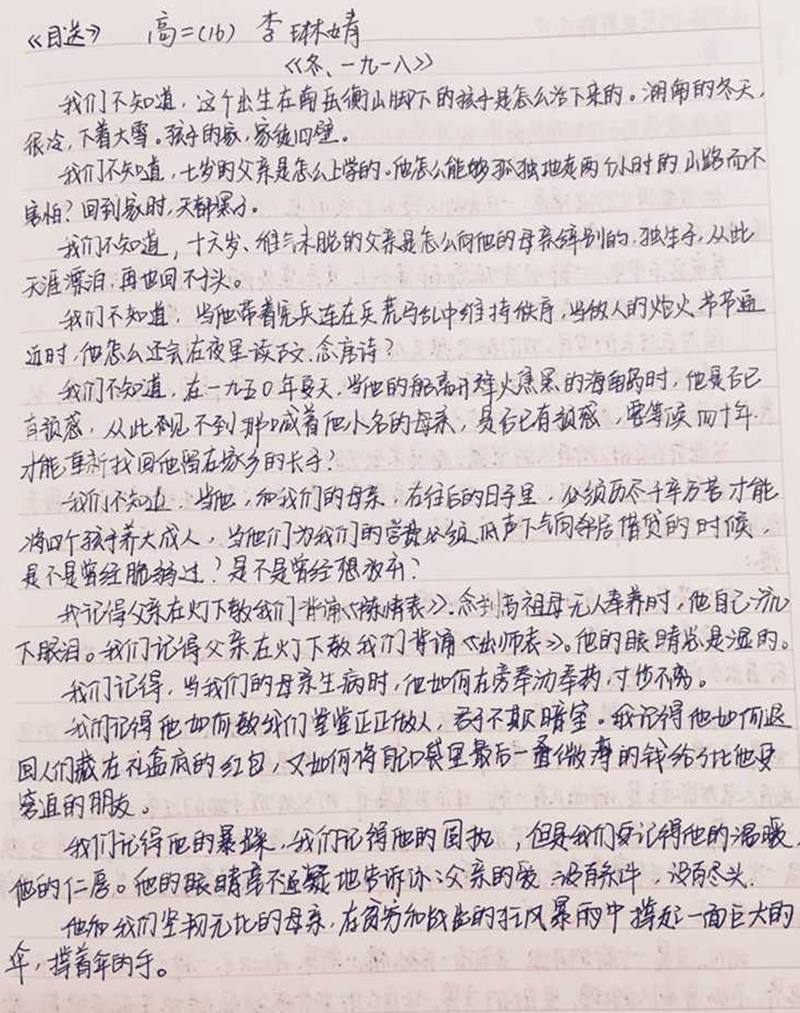 《目送》 高二(16) 李琳婧
《冬、一九一八》
我们不知道，这个出生在南岳衡山脚下的孩子是怎么活下来的。湖南的冬天，
很冷，下着大雪。孩子的家，家徒四壁。
我们不知道，七岁的父亲是怎么上学的。他怎么能够孤独地走两个小时的山路而不
害怕？回到家时，天都黑了。
我们不知道，十六岁、稚气未脱的父亲是怎么向他的母亲辞别的，独生子，从此
天涯漂泊，再也回不了头。
我们不知道，当他带着宪兵连在兵荒马乱中维持秩序，当敌人的炮火节节逼
近时，他怎么还会在夜里读古文、念唐诗？
我们不知道，在一九五0年夏天，当他的船离开烽火焦黑的海南岛时，他是否已
有预感，从此见不到那喊着他小名的母亲，是否已有预感，要等候四十年
才能重新找回他留在家乡的长子？
我们不知道，当他，和我们的母亲，在往后的日子里，必须历尽千辛万苦才能
将四个孩子养大成人，当他们为我们的学费必须低声下气向邻居借贷的时候，
是不是曾经脆弱过？是不是曾经想放弃？
我记得父亲在灯下教我们背诵《陈情表》。念到高祖母无人奉养时，他自己流
下眼泪。我们记得父亲在灯下教我们背诵《出师表》。他的眼睛总是湿的。
我们记得，当我们的母亲生病时，他如何在旁奉汤奉药，寸步不离。
我们记得他如何教我们堂堂正正做人，君子不欺暗室。我记得他如何退
回人们藏在礼盒底的红包，又如何将自己口袋里最后一叠微薄的钱给了比他更
窘迫的朋友.
我们记得他的暴躁，我们记得他的固执，但是我们更记得他的温暖，
他的仁厚。他的眼睛毫不迟疑地告诉你：父亲的爱，没有条件，没有尽头.
他和我们坚韧无比的母亲，在贫穷和战乱的狂风暴雨中撑起一面巨大的
伞，撑着年的手。